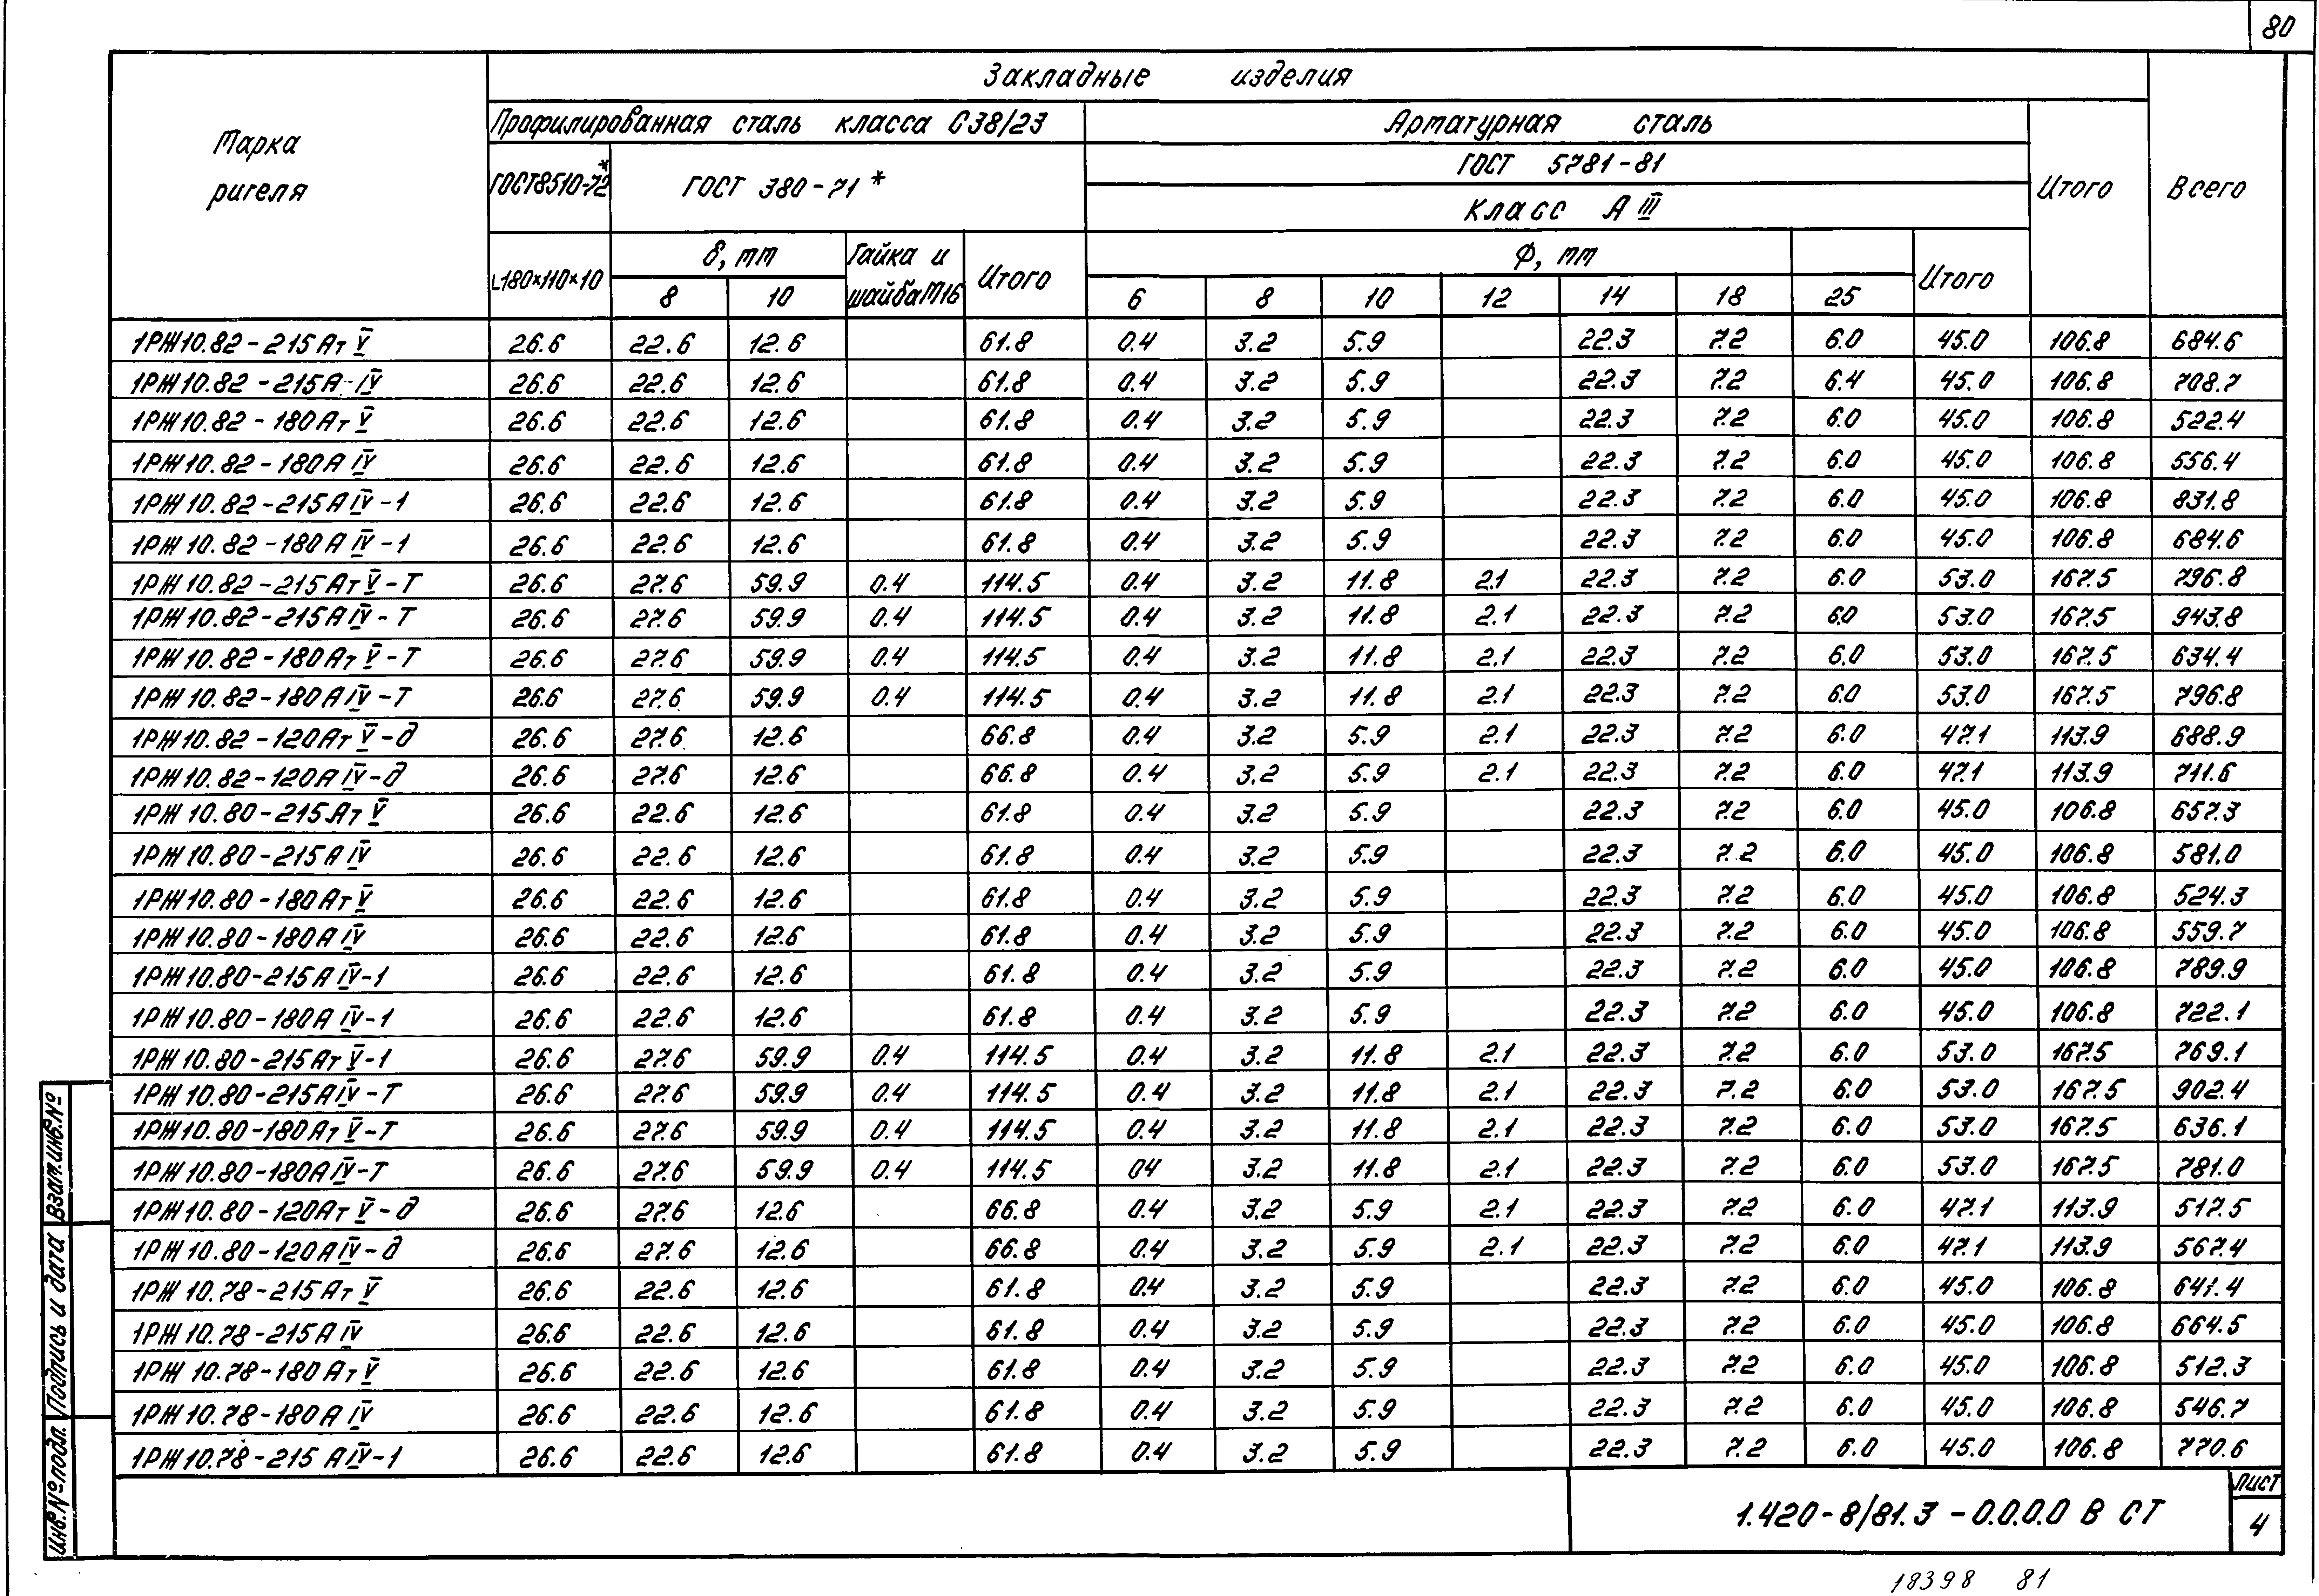 80
Закладные изделия
Марка ригеля
Профилированная сталь класса С38/23
Арматурная сталь
Итого
Всего
ГОСТ8510-72*
ГОСТ 380-71*
ГОСТ 5781-81
Класс А III
L180×110×10
δ, мм
Гайка и шайба М16
Итого
Ф, мм
Итого
8 10 6 8 10 12 14 18 25
1РЖ10.82-215Ат V 26.6 22.6 12.6 61.8 0.4 3.2 5.9 22.3 7.2 6.0 45.0 106.8 684.6
1РЖ10.82-215А-IV 26.6 22.6 12.6 61.8 0.4 3.2 5.9 22.3 7.2 6.4 45.0 106.8 708.7
1РЖ10.82-180Ат V 26.6 22.6 12.6 61.8 0.4 3.2 5.9 22.3 7.2 6.0 45.0 106.8 522.4
1РЖ10.82-180А IV 26.6 22.6 12.6 61.8 0.4 3.2 5.9 22.3 7.2 6.0 45.0 106.8 556.4
1РЖ10.82-215А IV-1 26.6 22.6 12.6 61.8 0.4 3.2 5.9 22.3 7.2 6.0 45.0 106.8 831.8
1РЖ10.82-180А IV-1 26.6 22.6 12.6 61.8 0.4 3.2 5.9 22.3 7.2 6.0 45.0 106.8 684.6
1РЖ10.82-215Ат V-Т 26.6 27.6 59.9 0.4 114.5 0.4 3.2 11.8 2.1 22.3 7.2 6.0 53.0 167.5 796.8
1РЖ10.82-215А IV-Т 26.6 27.6 59.9 0.4 114.5 0.4 3.2 11.8 2.1 22.3 7.2 6.0 53.0 167.5 943.8
1РЖ10.82-180Ат V-Т 26.6 27.6 59.9 0.4 114.5 0.4 3.2 11.8 2.1 22.3 7.2 6.0 53.0 167.5 634.4
1РЖ10.82-180А IV-Т 26.6 27.6 59.9 0.4 114.5 0.4 3.2 11.8 2.1 22.3 7.2 6.0 53.0 167.5 796.8
1РЖ10.82-120Ат V-д 26.6 27.6 12.6 66.8 0.4 3.2 5.9 2.1 22.3 7.2 6.0 47.1 113.9 688.9
1РЖ10.82-120А IV-д 26.6 27.6 12.6 66.8 0.4 3.2 5.9 2.1 22.3 7.2 6.0 47.1 113.9 711.6
1РЖ10.80-215Ат V 26.6 22.6 12.6 61.8 0.4 3.2 5.9 22.3 7.2 6.0 45.0 106.8 657.3
1РЖ10.80-215А IV 26.6 22.6 12.6 61.8 0.4 3.2 5.9 22.3 7.2 6.0 45.0 106.8 581.0
1РЖ10.80-180Ат V 26.6 22.6 12.6 61.8 0.4 3.2 5.9 22.3 7.2 6.0 45.0 106.8 524.3
1РЖ10.80-180А IV 26.6 22.6 12.6 61.8 0.4 3.2 5.9 22.3 7.2 6.0 45.0 106.8 559.7
1РЖ10.80-215А IV-1 26.6 22.6 12.6 61.8 0.4 3.2 5.9 22.3 7.2 6.0 45.0 106.8 789.9
1РЖ10.80-180А IV-1 26.6 22.6 12.6 61.8 0.4 3.2 5.9 22.3 7.2 6.0 45.0 106.8 722.1
1РЖ10.80-215Ат V-1 26.6 27.6 59.9 0.4 114.5 0.4 3.2 11.8 2.1 22.3 7.2 6.0 53.0 167.5 769.1
1РЖ10.80-215А IV-Т 26.6 27.6 59.9 0.4 114.5 0.4 3.2 11.8 2.1 22.3 7.2 6.0 53.0 167.5 902.4
1РЖ10.80-180Ат V-Т 26.6 27.6 59.9 0.4 114.5 0.4 3.2 11.8 2.1 22.3 7.2 6.0 53.0 167.5 636.1
1РЖ10.80-180А IV-Т 26.6 27.6 59.9 0.4 114.5 04 3.2 11.8 2.1 22.3 7.2 6.0 53.0 167.5 781.0
1РЖ10.80-120Ат V-д 26.6 27.6 12.6 66.8 0.4 3.2 5.9 2.1 22.3 7.2 6.0 47.1 113.9 517.5
1РЖ10.80-120А IV-д 26.6 27.6 12.6 66.8 0.4 3.2 5.9 2.1 22.3 7.2 6.0 47.1 113.9 567.4
1РЖ10.78-215Ат V 26.6 22.6 12.6 61.8 0.4 3.2 5.9 22.3 7.2 6.0 45.0 106.8 641.4
1РЖ10.78-215А IV 26.6 22.6 12.6 61.8 0.4 3.2 5.9 22.3 7.2 6.0 45.0 106.8 664.5
1РЖ10.78-180Ат V 26.6 22.6 12.6 61.8 0.4 3.2 5.9 22.3 7.2 6.0 45.0 106.8 512.3
1РЖ10.78-180А IV 26.6 22.6 12.6 61.8 0.4 3.2 5.9 22.3 7.2 6.0 45.0 106.8 546.7
1РЖ10.78-215 А IV-1 26.6 22.6 12.6 61.8 0.4 3.2 5.9 22.3 7.2 6.0 45.0 106.8 770.6
Взам.инв.№
Подпись и дата
Инв.№подл.
1.420-8/81.3-0.0.0.0 В СТ
Лист
4
18398 81